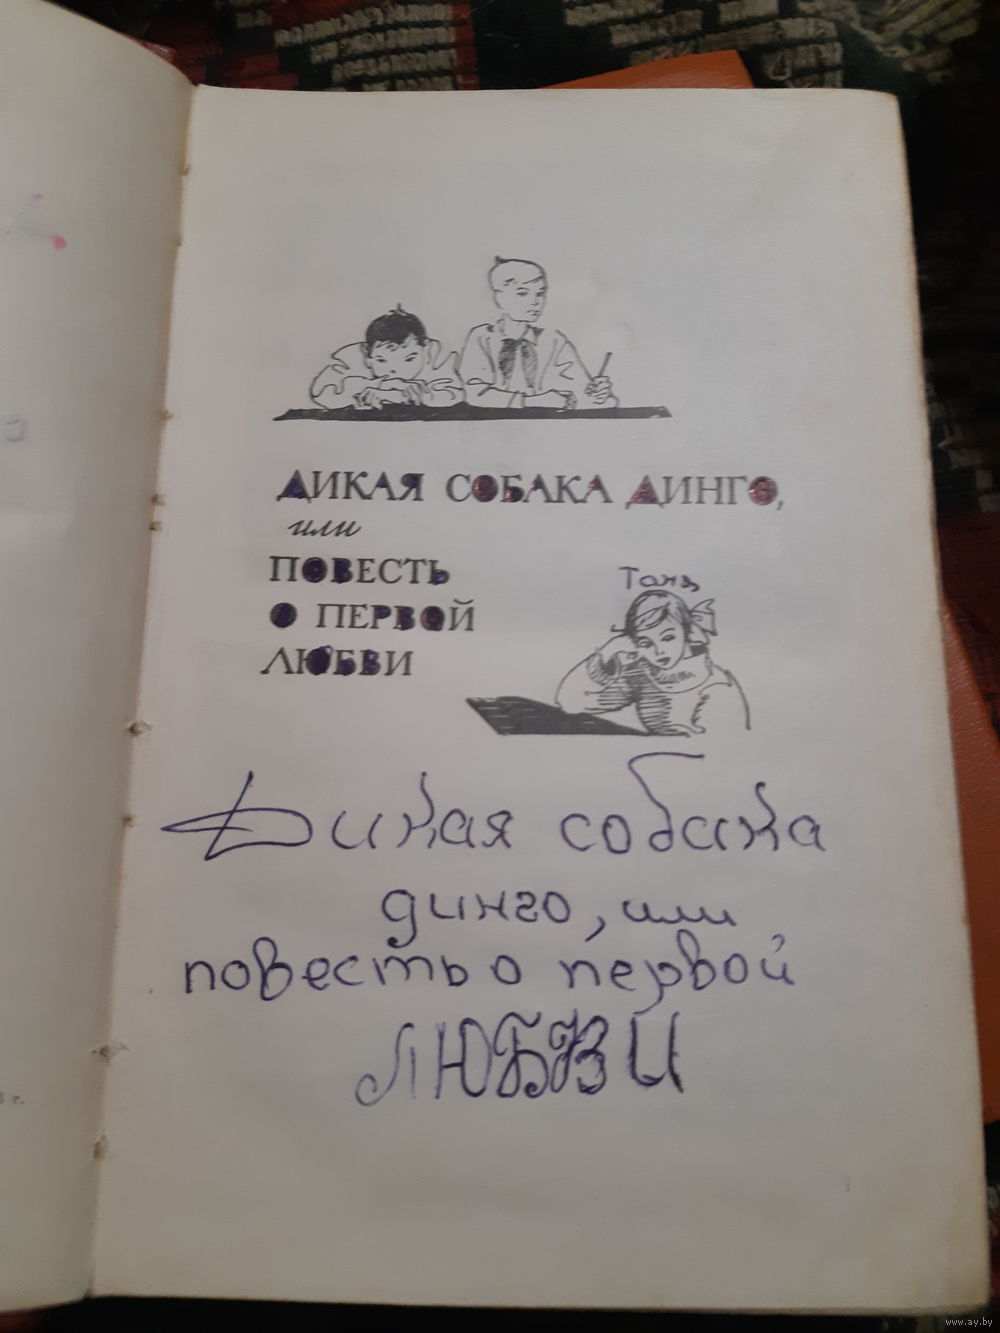 ДИКАЯ СОБАКА ДИНГО,
или
ПОВЕСТЬ
О ПЕРВОЙ
ЛЮБВИ
Таня
Дикая собака
динго, или
повесть о первой
ЛЮБВИ
www.ay.by